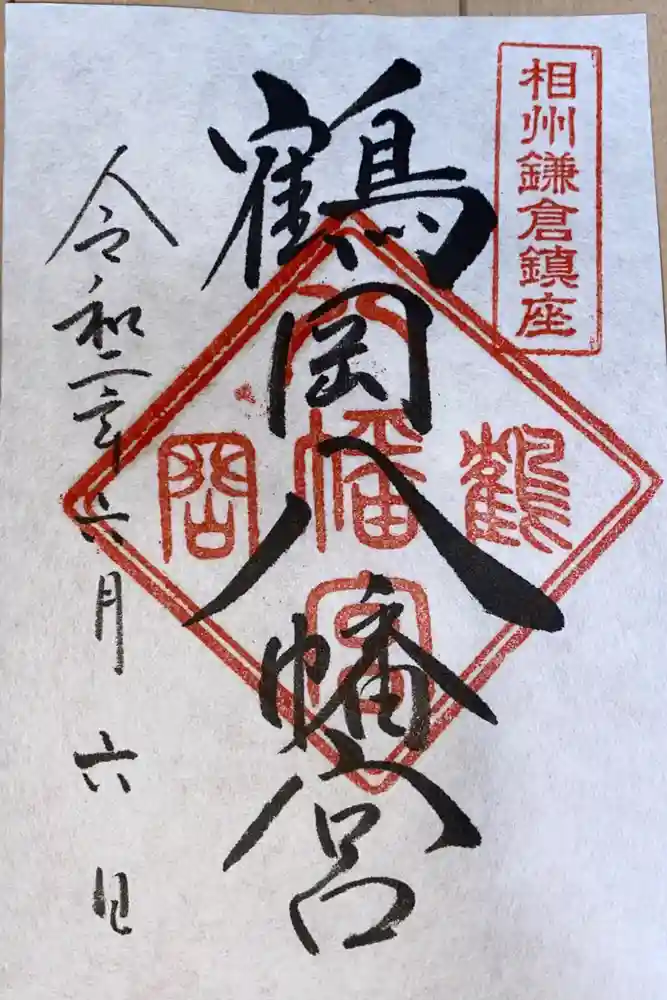 相州鎌倉鎮座
鶴岡八幡宮
鶴
八幡宮
岡
令和二年六月六日